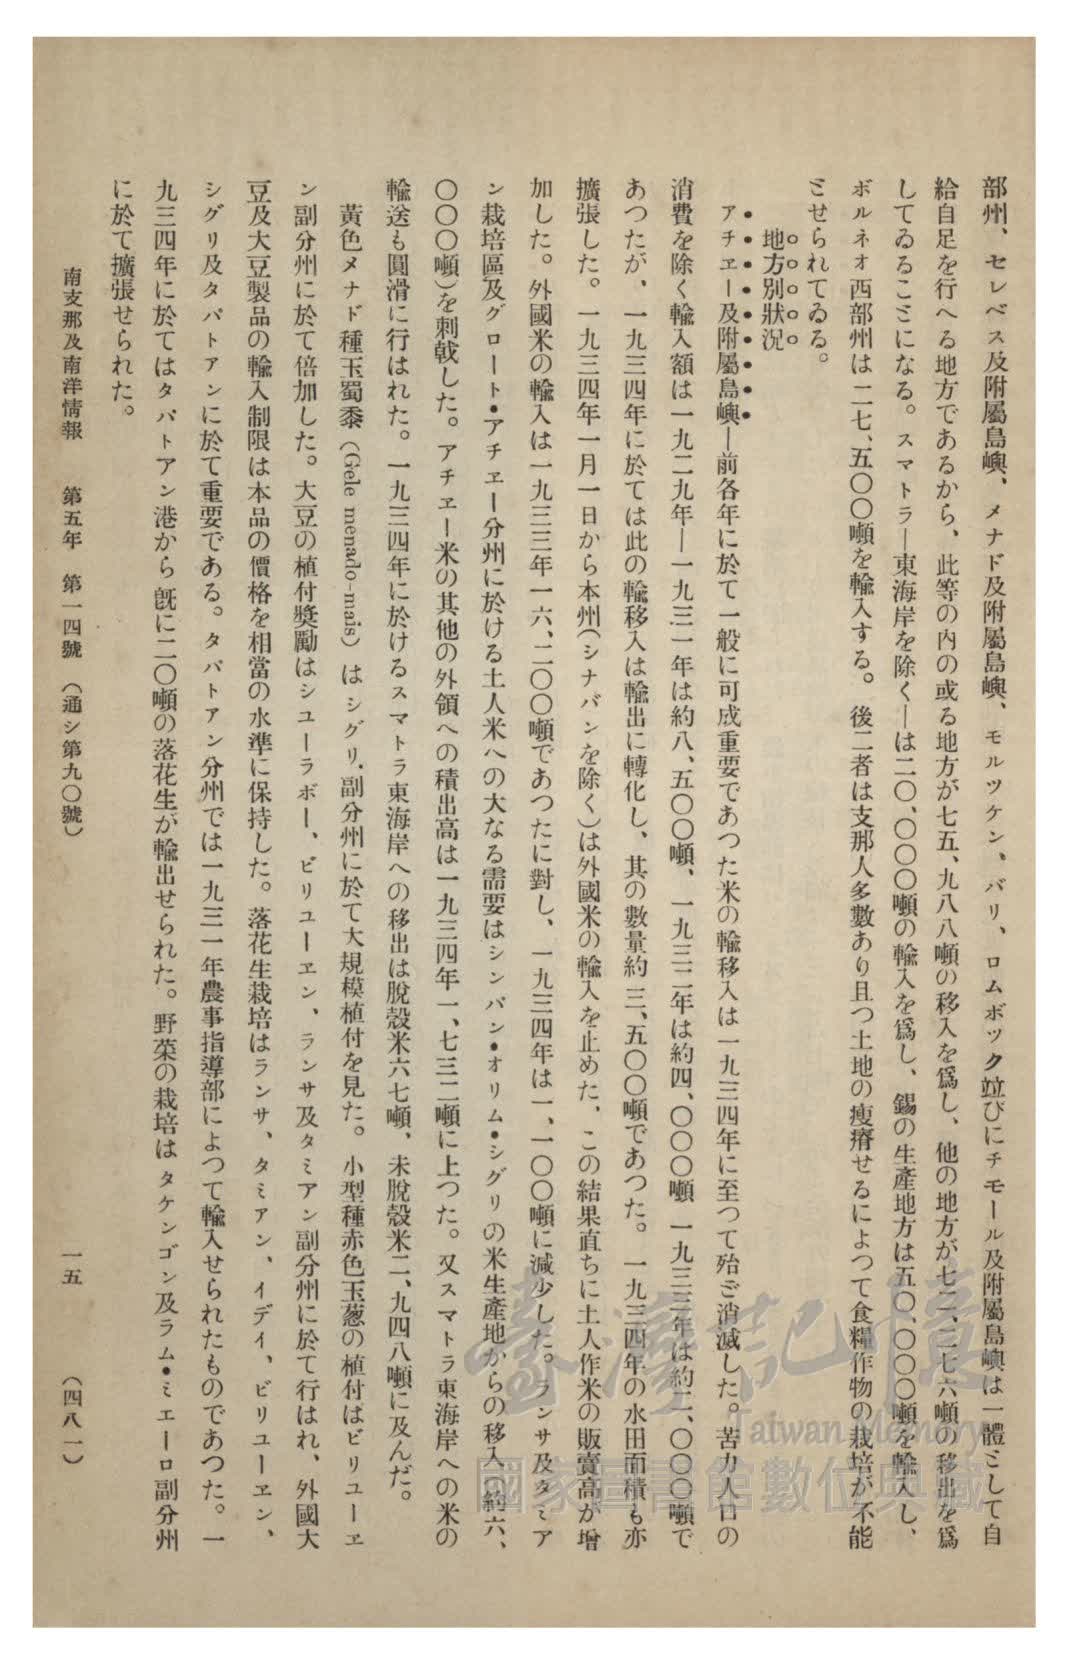 部州、セレベス及附屬島嶼、メナド及附屬島嶼、モルツケン、バリ、ロムボック竝びにチモール及附屬島嶼は一體として自
給自足を行へる地方であるから、此等の内の或る地方が七五、九八八噸の移入を爲し、他の地方が七二、二七六噸の移出を爲
してゐることになる。スマトラ―東海岸を除く―は二〇、〇〇〇噸の輸入を爲し、錫の生產地方は五〇、〇〇〇噸を輸入し、
ボルネオ西部州は二七、五〇〇噸を輸入する。後二者は支那人多數あり且つ土地の瘦瘠せるによつて食糧作物の栽培が不能
とせられてゐる。
地方別狀況
アチエー及附屬島嶼―前各年に於て一般に可成重要であつた米の輸移入は一九三四年に至つて殆ご消滅した。苦力人口の
消費を除く輸入額は一九二九年―一九三一年は約八、五〇〇噸、一九三二年は約四、〇〇〇噸 一九三三年は約二、〇〇〇噸で
あつたが、一九三四年に於ては此の輸移入は輸出に轉化し、其の數量約三、五〇〇噸であつた。一九三四年の水田面積も亦
擴張した。一九三四年一月一日から本州(シナバンを除く)は外國米の輸入を止めた、この結果直ちに土人作米の販賣高が增
加した。外國米の輸入は一九三三年一六、二〇〇噸であつたに對し、一九三四年は一、一〇〇噸に減少した。ランサ及タミア
ン栽培區及グロート・アチエー分州に於ける土人米への大なる需要はシンバン・オリム・シグリの米生產地からの移入(約六、
〇〇〇噸)を刺戟した。アチエー米の其他の外領への積出高は一九三四年一、七三二噸に上つた。又スマトラ東海岸への米の
輸送も圓滑に行はれた。一九三四年に於けるスマトラ東海岸への移出は脫穀米六七噸、未脫穀米二、九四八噸に及んだ。
黃色メナド種玉蜀黍(Gele menado-mais)はシグリ.副分州に於て大規模植付を見た。小型種赤色玉葱の植付はビリユーエ
ン副分州に於て倍加した。大豆の植付獎勵はシユーラボー、ビリユーエン、ランサ及タミアン副分州に於て行はれ、外國大
豆及大豆製品の輸入制限は本品の價格を相當の水準に保持した。落花生栽培はランサ、タミアン、イデイ、ビリユーエン、
シグリ及タパトアンに於て重要である。タパトアン分州では一九三一年農事指導部によつて輸入せられたものであつた。一
九三四年に於てはタパトアン港から旣に二〇噸の落花生が輸出せられた。野菜の栽培はタケンゴン及ラム・ミエーロ副分州
に於て擴張せられた。
南支那及南洋情報 第五年 第一四號 (通シ第九〇號) 一五 (四八一)
臺灣記憶
Taiwan Memory
國家圖書館數位典藏